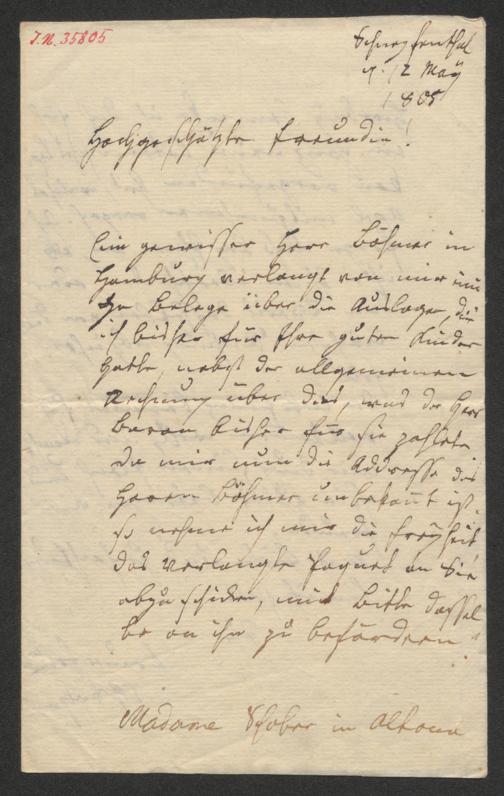 J.N. 35805
Schnepfenthal
d. 12 May
1805
Hochgeschätzte Freundin!
Ein gewisser Herr Böhmer in
Hamburg verlangt von mir nun
die Belege über die Auslagen, die
ich bisher für Ihre guten Kinder
hatte, nebst der allgemeinen
Rechnung über das, was der Herr
Baron bisher für sie zahlete
Da mir nun die Addresse des
Herrn Böhmer unbekannt ist,
so nehme ich mir die Freyheit
das verlangte Paquet an Sie
abzuschicken, mit Bitte dassel
be an ihn zu befördern
Madame Schober in Altona